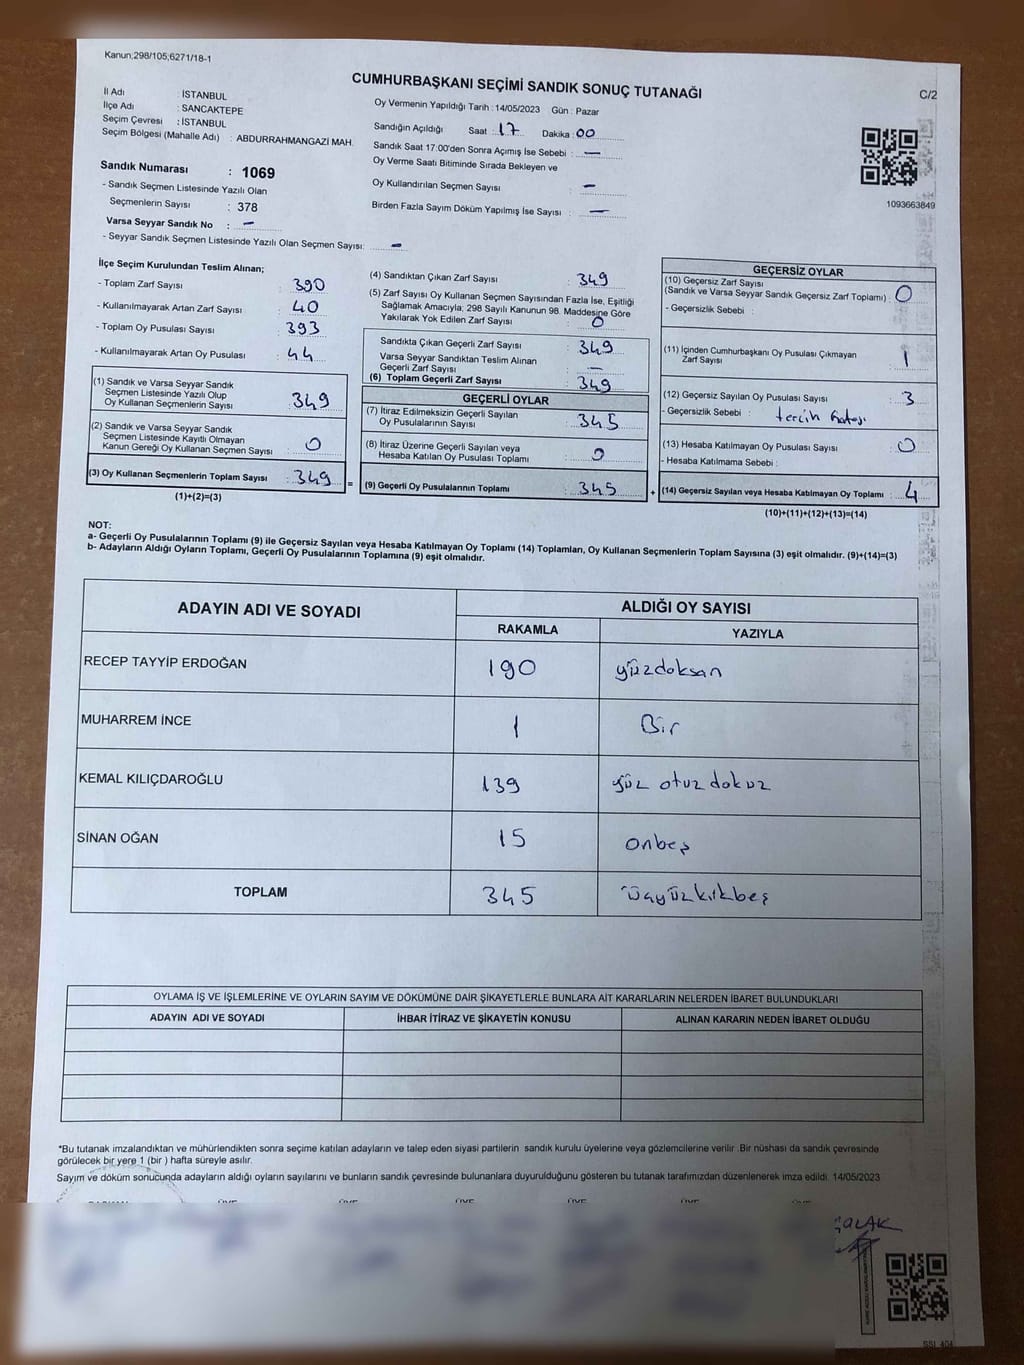 Kanun;298/105;6271/18-1
CUMHURBAŞKANI SEÇİMİ SANDIK SONUÇ TUTANAĞI
C/2
İl Adı : İSTANBUL
İlçe Adı : SANCAKTEPE
Seçim Çevresi : İSTANBUL
Seçim Bölgesi (Mahalle Adı) : ABDURRAHMANGAZİ MAH.
Oy Vermenin Yapıldığı Tarih : 14/05/2023 Gün : Pazar
Sandığın Açıldığı Saat : 17 Dakika : 00
Sandık Saat 17:00'den Sonra Açımış İse Sebebi : —
Oy Verme Saati Bitiminde Sırada Bekleyen ve
Oy Kullandırılan Seçmen Sayısı : —
Birden Fazla Sayım Döküm Yapılmış İse Sayısı : —
1093663849
Sandık Numarası : 1069
- Sandık Seçmen Listesinde Yazılı Olan
Seçmenlerin Sayısı : 378
Varsa Seyyar Sandık No : —
- Seyyar Sandık Seçmen Listesinde Yazılı Olan Seçmen Sayısı: —
İlçe Seçim Kurulundan Teslim Alınan;
- Toplam Zarf Sayısı : 390
- Kullanılmayarak Artan Zarf Sayısı : 40
- Toplam Oy Pusulası Sayısı : 393
- Kullanılmayarak Artan Oy Pusulası : 44
(1) Sandık ve Varsa Seyyar Sandık
Seçmen Listesinde Yazılı Olup
Oy Kullanan Seçmenlerin Sayısı : 349
(2) Sandık ve Varsa Seyyar Sandık
Seçmen Listesinde Kayıtlı Olmayan
Kanun Gereği Oy Kullanan Seçmen Sayısı : 0
(3) Oy Kullanan Seçmenlerin Toplam Sayısı : 349 =
(1)+(2)=(3)
(4) Sandıktan Çıkan Zarf Sayısı : 349
(5) Zarf Sayısı Oy Kullanan Seçmen Sayısından Fazla İse, Eşitliği
Sağlamak Amacıyla; 298 Sayılı Kanunun 98. Maddesine Göre
Yakılarak Yok Edilen Zarf Sayısı : 0
Sandıkta Çıkan Geçerli Zarf Sayısı : 349
Varsa Seyyar Sandıktan Teslim Alınan
Geçerli Zarf Sayısı : —
(6) Toplam Geçerli Zarf Sayısı : 349
GEÇERLİ OYLAR
(7) İtiraz Edilmeksizin Geçerli Sayılan
Oy Pusulalarının Sayısı : 345
(8) İtiraz Üzerine Geçerli Sayılan veya
Hesaba Katılan Oy Pusulası Toplamı : 0
(9) Geçerli Oy Pusulalarının Toplamı : 345 +
GEÇERSİZ OYLAR
(10) Geçersiz Zarf Sayısı
(Sandık ve Varsa Seyyar Sandık Geçersiz Zarf Toplamı) : 0
- Geçersizlik Sebebi :
(11) İçinden Cumhurbaşkanı Oy Pusulası Çıkmayan
Zarf Sayısı : 1
(12) Geçersiz Sayılan Oy Pusulası Sayısı : 3
- Geçersizlik Sebebi : tercih hatası
(13) Hesaba Katılmayan Oy Pusulası Sayısı : 0
- Hesaba Katılmama Sebebi :
(14) Geçersiz Sayılan veya Hesaba Katılmayan Oy Toplamı : 4
(10)+(11)+(12)+(13)=(14)
NOT:
a- Geçerli Oy Pusulalarının Toplamı (9) ile Geçersiz Sayılan veya Hesaba Katılmayan Oy Toplamı (14) Toplamları, Oy Kullanan Seçmenlerin Toplam Sayısına (3) eşit olmalıdır. (9)+(14)=(3)
b- Adayların Aldığı Oyların Toplamı, Geçerli Oy Pusulalarının Toplamına (9) eşit olmalıdır.
ADAYIN ADI VE SOYADI ALDIĞI OY SAYISI
RAKAMLA YAZIYLA
RECEP TAYYİP ERDOĞAN 190 yüzdoksan
MUHARREM İNCE 1 Bir
KEMAL KILIÇDAROĞLU 139 yüz otuz dokuz
SİNAN OĞAN 15 onbeş
TOPLAM 345 üçyüzkırkbeş
OYLAMA İŞ VE İŞLEMLERİNE VE OYLARIN SAYIM VE DÖKÜMÜNE DAİR ŞİKAYETLERLE BUNLARA AİT KARARLARIN NELERDEN İBARET BULUNDUKLARI
ADAYIN ADI VE SOYADI İHBAR İTİRAZ VE ŞİKAYETİN KONUSU ALINAN KARARIN NEDEN İBARET OLDUĞU
*Bu tutanak imzalandıktan ve mühürlendikten sonra seçime katılan adayların ve talep eden siyasi partilerin sandık kurulu üyelerine veya gözlemcilerine verilir .Bir nüshası da sandık çevresinde
görülecek bir yere 1 (bir ) hafta süreyle asılır.
Sayım ve döküm sonucunda adayların aldığı oyların sayılarını ve bunların sandık çevresinde bulunanlara duyurulduğunu gösteren bu tutanak tarafımızdan düzenlenerek imza edildi. 14/05/2023